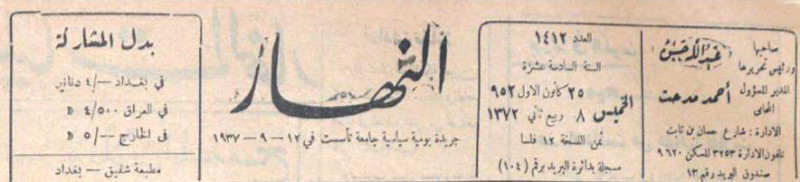 صاحبها
ورئيس تحريرها
عبدالله حسين
المدير المسؤول
المحامي
أحمد مدحت
الادارة : شارع حسان بن ثابت
تلفون الادارة ٣٢٥٣ للسكن ٩٦٢٠
صندوق البريد رقم ١٣
العدد ١٤١٢
السنة السادسة عشرة
الخميس
٢٥ كانون الاول ٩٥٢
٨ ربيع ثاني ١٣٧٢
ثمن النسخة ١٢ فلسا
مسجلة بدائرة البريد برقم (١٠٤)
النهار
جريدة يومية سياسية جامعة تأسست في ١٢ — ٩ — ١٩٣٧
بدل المشاركة
في بغداد —/٤ دنانير
في العراق ٤/٥٠٠ D
في الخارج —/٥ D
مطبعة شفيق — بغداد